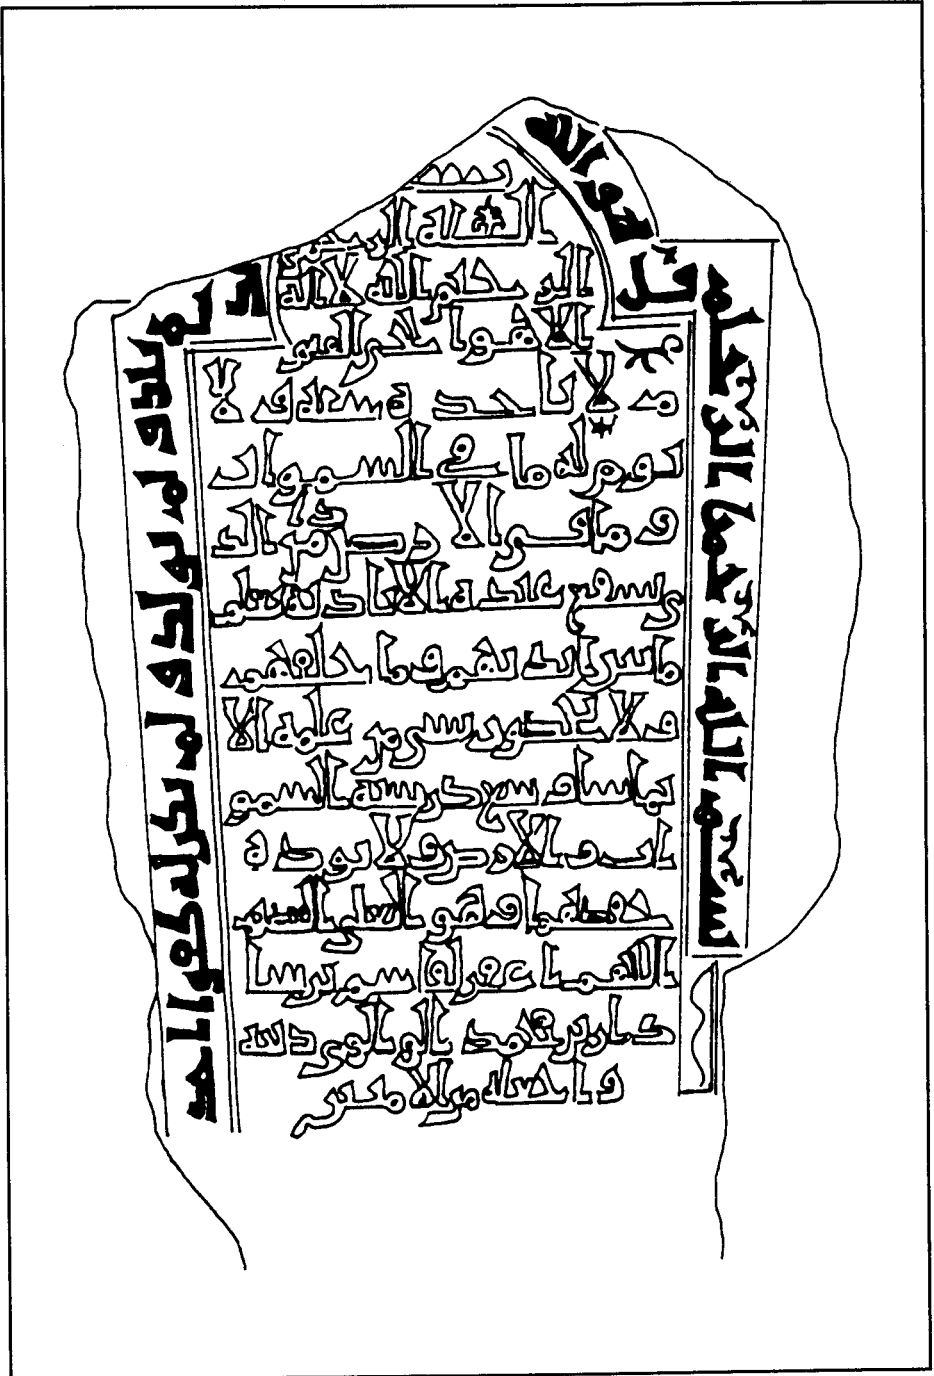 بسم الله الرحمن الرحيم
قل هو الله
لم يلد ولم يولد ولم يكن له كفوا احد
بسم
الله الرحمن
الله لا اله
الا هو الحي القيو
م لا تاخذه سنة ولا
نوم له ما في السموات
وما في الارض من ذا الذ
ي يشفع عنده الا باذنه يعلم
ما بين ايديهم وما خلفهم
ولا يحيطون بشي من علمه الا
بما شا وسع كرسيه السمو
ات والارض ولا يوده
حفظهما وهو العلي العظيم
اللهم اغفر
واجعله من الامنين